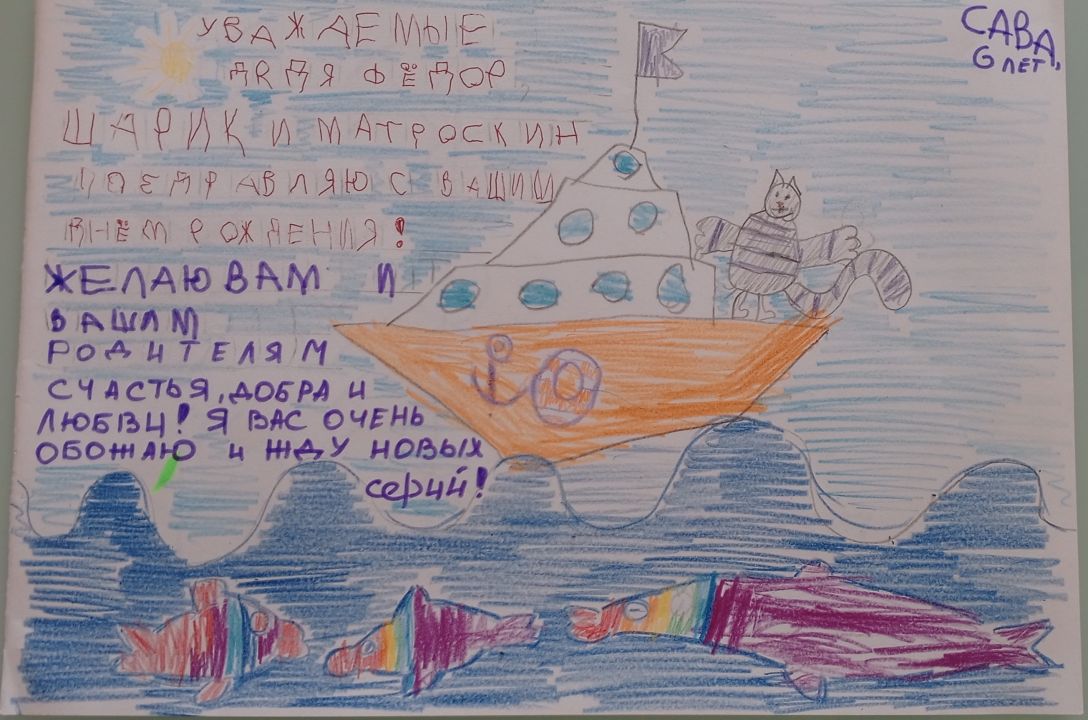 САВА,
6 ЛЕТ
УВАЖАЕМЫЕ
ДЯДЯ ФЁДОР,
ШАРИК И МАТРОСКИН
ПОЗДРАВЛЯЮ С ВАШИМ
ДНЁМ РОЖДЕНИЯ!
ЖЕЛАЮ ВАМ И
ВАШИМ
РОДИТЕЛЯМ
СЧАСТЬЯ, ДОБРА И
ЛЮБВИ! Я ВАС ОЧЕНЬ
ОБОЖАЮ И ЖДУ НОВЫХ
серий!